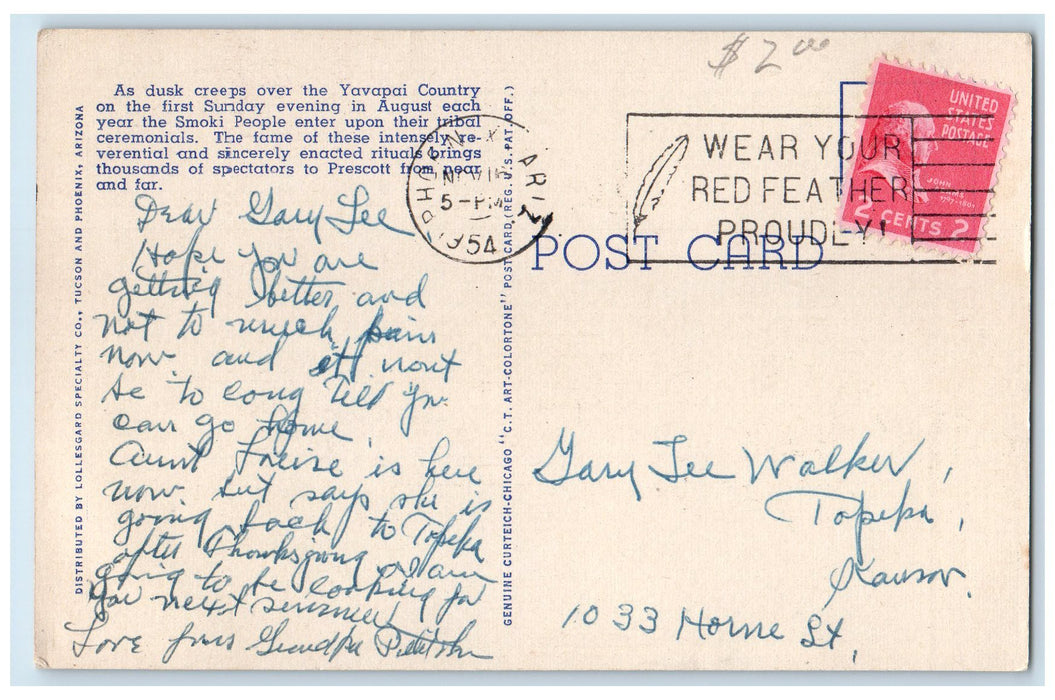 $2.00
As dusk creeps over the Yavapai Country
on the first Sunday evening in August each
year the Smoki People enter upon their tribal
ceremonials. The fame of these intensely re-
verential and sincerely enacted rituals brings
thousands of spectators to Prescott from near
and far.
Dear Gary Lee
Hope you are
getting better and
not to much pain
now. and it wont
be to long till you
can go home.
Aunt is here
now. but says she is
going back to Topeka
after Thanksgiving I am
going to be looking for
you next summer
Love from Grandpa
DISTRIBUTED BY LOLLESGARD SPECIALTY CO., TUCSON AND PHOENIX, ARIZONA
GENUINE CURTEICH-CHICAGO "C.T. ART-COLORTONE" POST CARD (REG. U.S. PAT. OFF.)
PHOENIX ARIZ.
NOV 15
5-PM
1954
WEAR YOUR
RED FEATHER
PROUDLY!
UNITED
STATES
POSTAGE
JOHN
1797-1801
2 CENTS 2
POST CARD
Gary Lee Walker,
Topeka,
Kansas.
1033 Horne St,